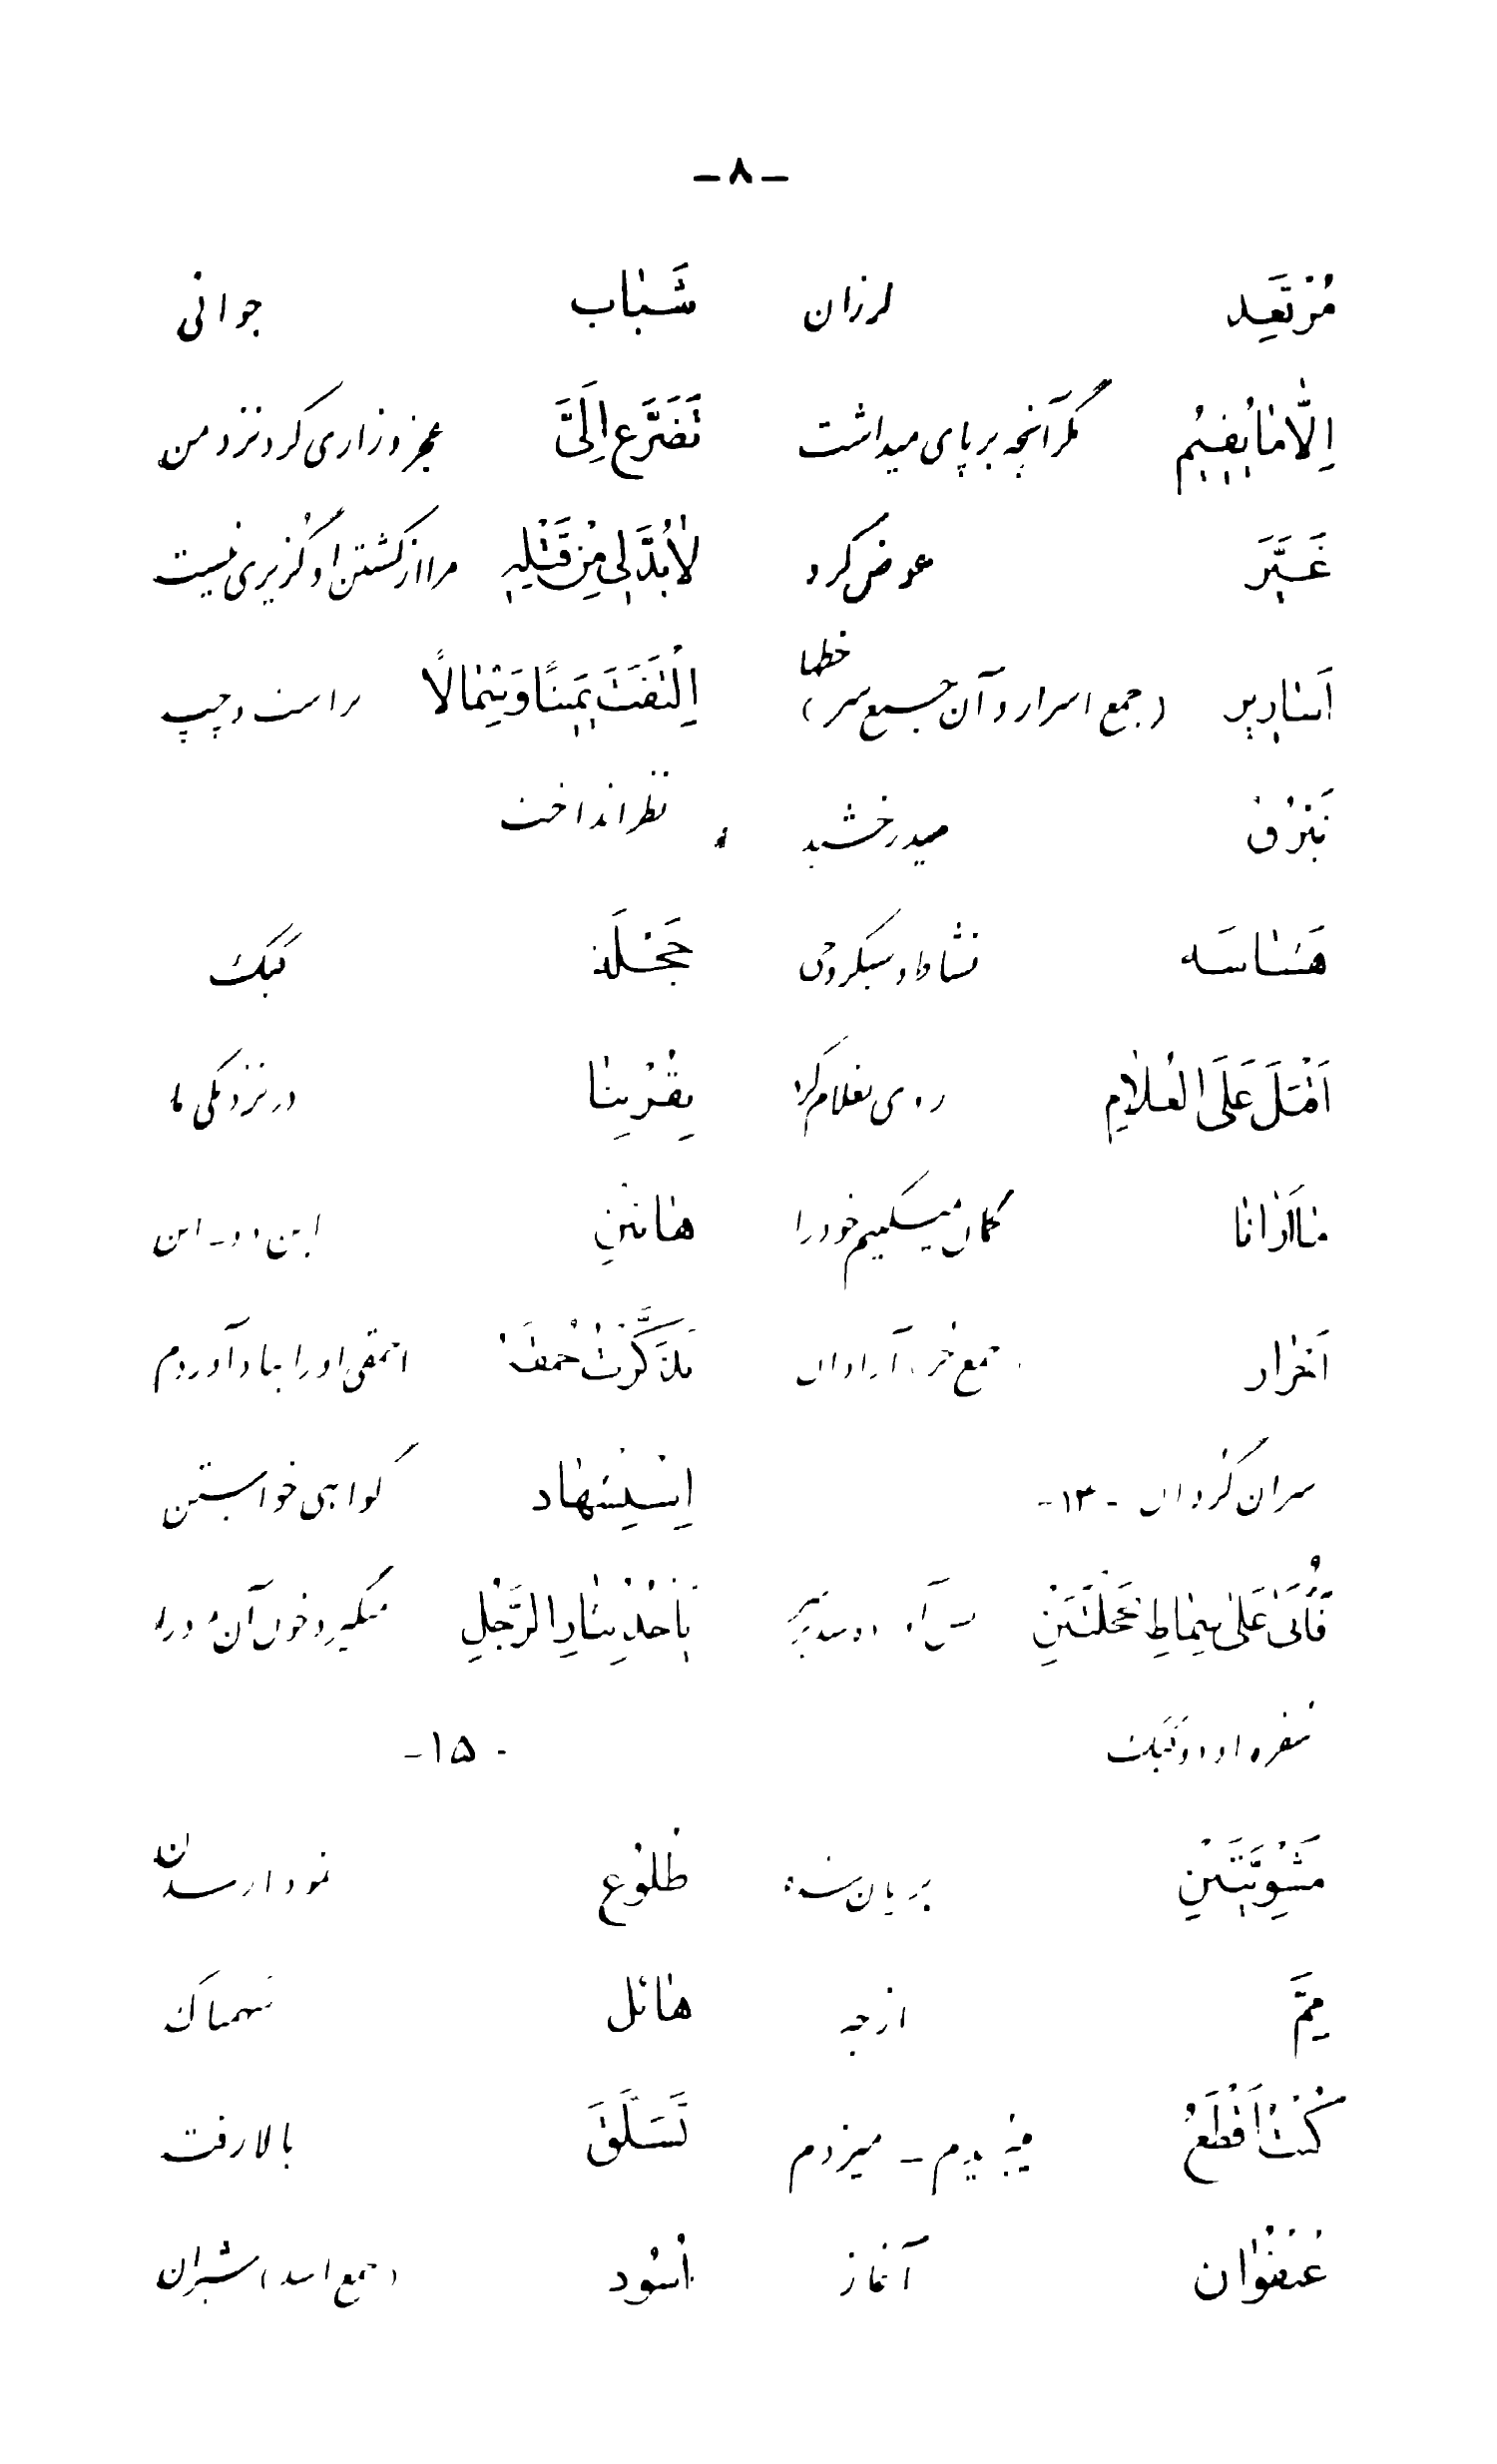 -۸-
مُرْتَعِد لرزان شَبٰاب جوانی
اِلّٰا مٰا يُقيٖمُ مگر آنچه برپای میداشت تَضَرَّعَ اِلَیَّ عجز و زاری کرد نزد من
غَيَّرَ عوض کرد لٰا بُدَّ لیٖ مِنْ قَتْلِهٖ مرا از کشتن او گزیری نیست
خطها
اَسٰاریٖر (جمع اسرار و آن جمع سر) اِلْتَفَتَ یَمیٖنًا وَ شِمٰالًا براست و چپ
تَبْرُقُ میدرخشید نظر انداخت
هَشٰاشَه نشاط و سبکروحی حَجْلَة کبک
اَقْبَلَ عَلَی الْغُلٰامِ روی بغلام کرد بِقُرْبِنٰا در نزدیکی ما
مٰا اَرٰانٰا گمان میکنیم خود را هٰاتَیْنِ این دو - این
اَحْرٰار جمع حر، آزادان تَذَکَّرْتُ حُمْقَهُ احمقی او را بیاد آوردم
سران کردان -۱۳- اِسْتِشْهٰاد گواهی خواستن
فَأُتیَ عَلیٰ سِمٰاطِهٖ بِحَجَلَتَیْنِ پس آورده شد بر یَأْخُذُ بِثٰارِ الرَّجُلِ میگیرد خون آن مرد را
سفره او دو کبک -۱۵-
مَشْوِیَّتَیْنِ بریان شده طُلوُع نمودار شدن
مِمَّ از چه هٰائل سهمناک
کُنْتُ اَقْطَعُ میبریدم - میزدم تَسَلَّقَ بالا رفت
عُنْفُوٰان آغاز اُسُود (جمع اسد) شیران